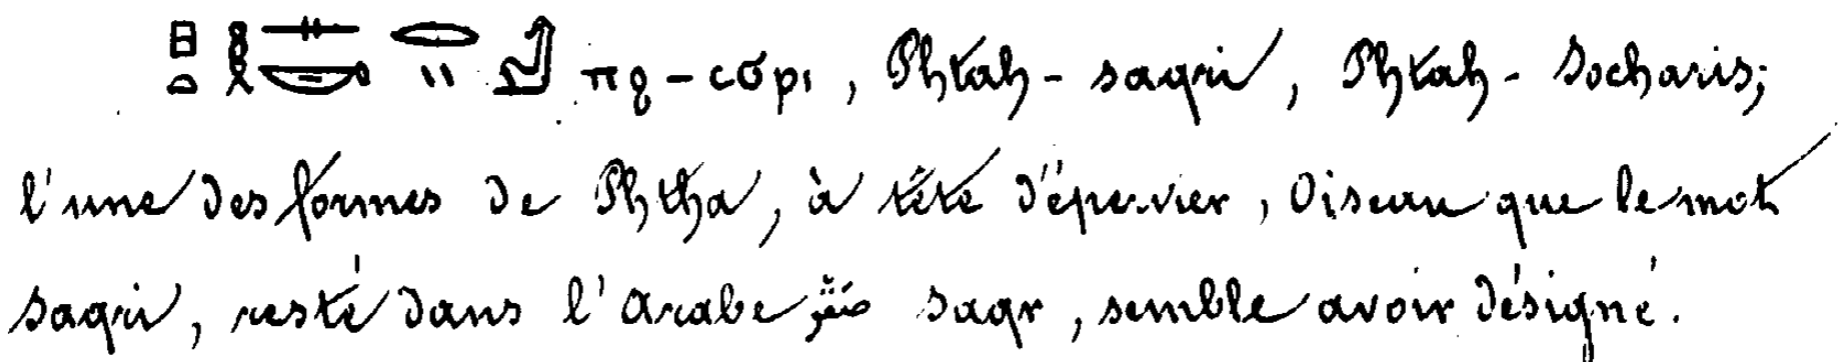 𓊪𓏏𓎛𓊃𓎡𓂋𓏭 ⲡϩ-ⲥϭⲣⲓ, Phtah-saqri, Phtah-Socharis;
l'une des formes de Phtha, à tête d'épervier, Oiseau que le mot
saqri, resté dans l'Arabe صقر saqr, semble avoir désigné.